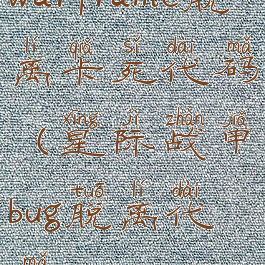 warframe脱
lí qiǎ sǐ dài mǎ
离卡死代码
xīng jì zhàn jiǎ
（星际战甲
tuō lí dài
bug脱离代
mǎ